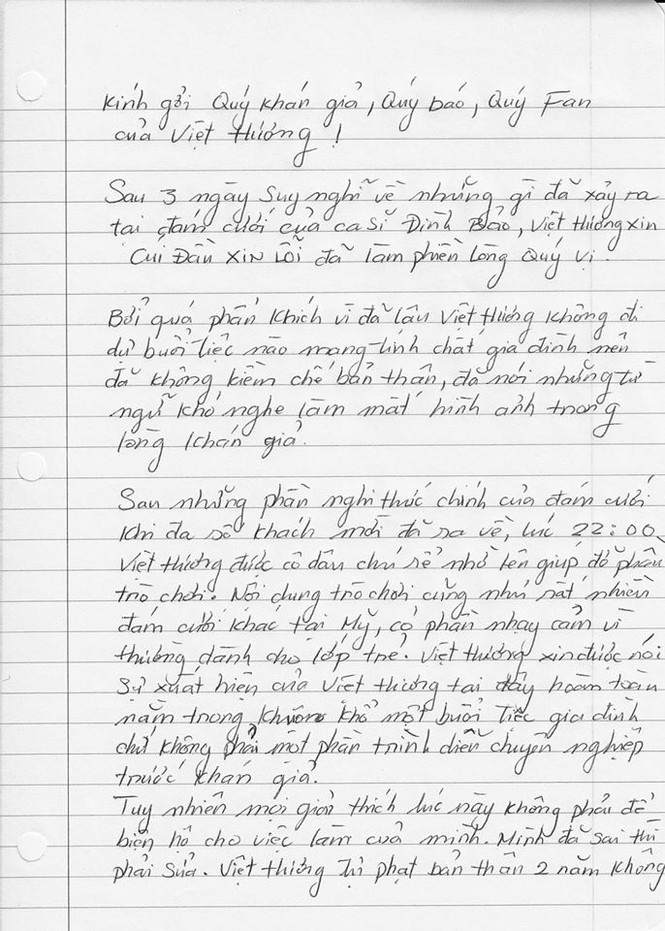 Kính gởi Quý khán giả, Quý báo, Quý Fan
của Việt Hương!
Sau 3 ngày suy nghĩ về những gì đã xảy ra
tại đám cưới của ca sĩ Đình Bảo, Việt Hương xin
Cúi Đầu Xin Lỗi đã làm phiền lòng Quý vị.
Bởi quá phấn khích vì đã lâu Việt Hương không đi
dự buổi tiệc nào mang tính chất gia đình nên
đã không kiềm chế bản thân, đã nói những từ
ngữ khó nghe làm mất hình ảnh trong
lòng khán giả.
Sau những phần nghi thức chính của đám cưới
khi đa số khách mời đã ra về, lúc 22:00,
Việt Hương được cô dâu chú rể nhờ lên giúp đỡ phần
trò chơi. Nội dung trò chơi cũng như rất nhiều
đám cưới khác tại Mỹ, có phần nhạy cảm vì
thường dành cho lớp trẻ. Việt Hương xin được nói
sự xuất hiện của Việt Hương tại đây hoàn toàn
nằm trong khuôn khổ một buổi tiệc gia đình
chứ không phải một phần trình diễn chuyên nghiệp
trước khán giả.
Tuy nhiên mọi giải thích lúc này không phải để
biện hộ cho việc làm của mình. Mình đã sai thì
phải sửa. Việt Hương tự phạt bản thân 2 năm không